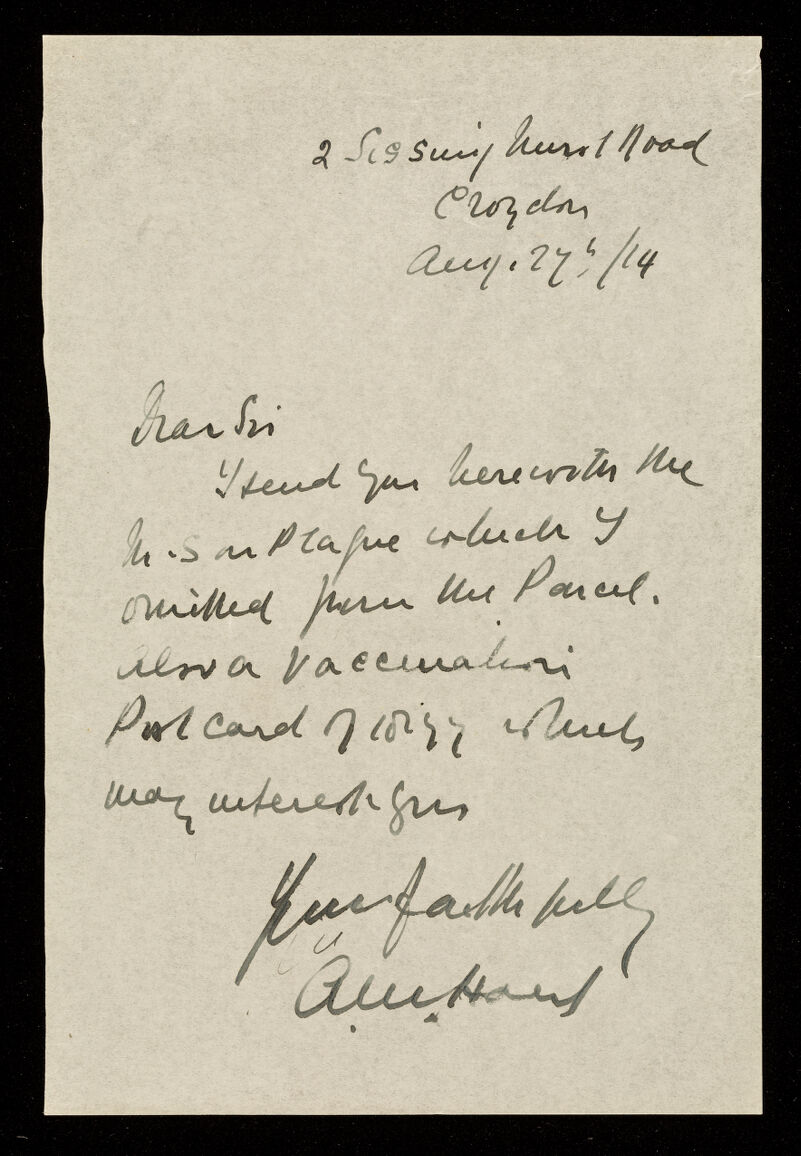 2 Sissinghurst Road
Croydon
Aug. 27th/14
Dear Sir
I send you herewith the
M.S on Plague which I
omitted from the Parcel.
Also a Vaccination
Post card of which
may interest you
Yours faithfully
A.W.